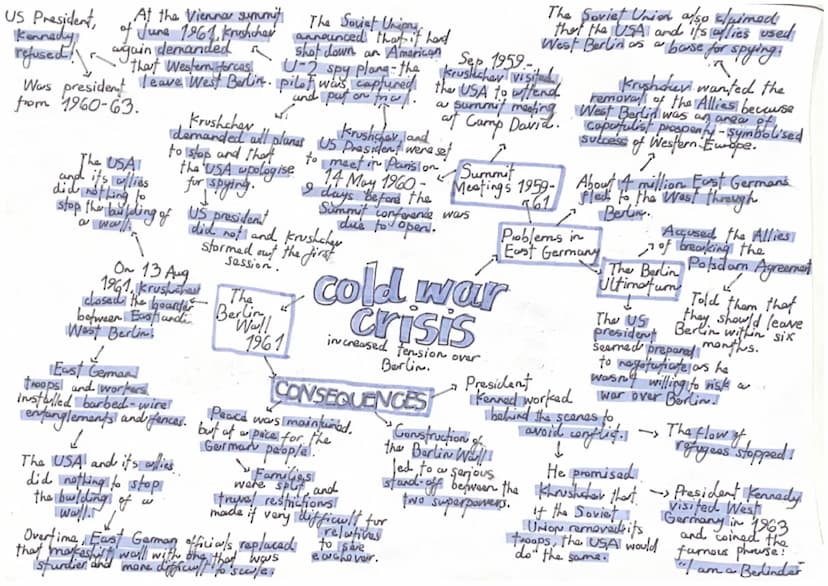 US President,
Kennedy
refused.
Was president
from 1960-63.
At the Vienna summit
of June 1961, Krushchev
again demanded
that Western forces
leave West Berlin.
The Soviet Union
announced that it had
shot down an American
U-2 spy plane - the
pilot was captured
and put on trial.
Krushchev
demanded all planes
to stop and that
the USA apologise
for spying.
US president
did not and Krushchev
stormed out the first
session.
Krushchev and
US President were set
to meet in Paris on
14 May 1960 -
9 days before the
Summit conference was
due to open.
Sep 1959 -
Krushchev visited
the USA to attend
a summit meeting
at Camp David.
Summit
Meetings 1959
-61
The Soviet Union also claimed
that the USA and its allies used
West Berlin as a base for spying.
Krushchev wanted the
removal of the Allies because
West Berlin was an area of
capitalist prosperity - symbolised
success of Western Europe.
About 4 million East Germans
fled to the West through
Berlin.
Problems in
East Germany
The Berlin
Ultimatum
Accused the Allies
of breaking the
Potsdam Agreement
Told them that
they should leave
Berlin within six
months.
The US
president
seemed prepared
to negotiate as he
wasn't willing to risk a
war over Berlin.
cold war
crisis
increased tension over
Berlin.
The
Berlin
Wall
1961
The USA
and its allies
did nothing to
stop the building of
a wall.
On 13 Aug
1961, Krushchev
closed the boarder
between East and
West Berlin.
East German
troops and workers
installed barbed-wire
entanglements and fences.
The USA and its allies
did nothing to stop
the building of a
wall.
Overtime, East German officials replaced
that makeshift wall with one that was
sturdier and more difficult to scale.
CONSEQUENCES
Peace was maintained
but at a price for the
German people.
Families
were split and
travel restrictions
made it very difficult for
relatives
to see
eachover.
Construction of
the Berlin Wall
led to a serious
stand-off between the
two superpowers.
President
Kenned worked
behind the scenes to
avoid conflict.
The flow of
refugees stopped.
He promised
Khrushchev that
if the Soviet
Union removed its
troops, the USA would
do the same.
President Kennedy
visited West
Germany in 1963
and coined the
famous phrase:
"I am a Berliner"